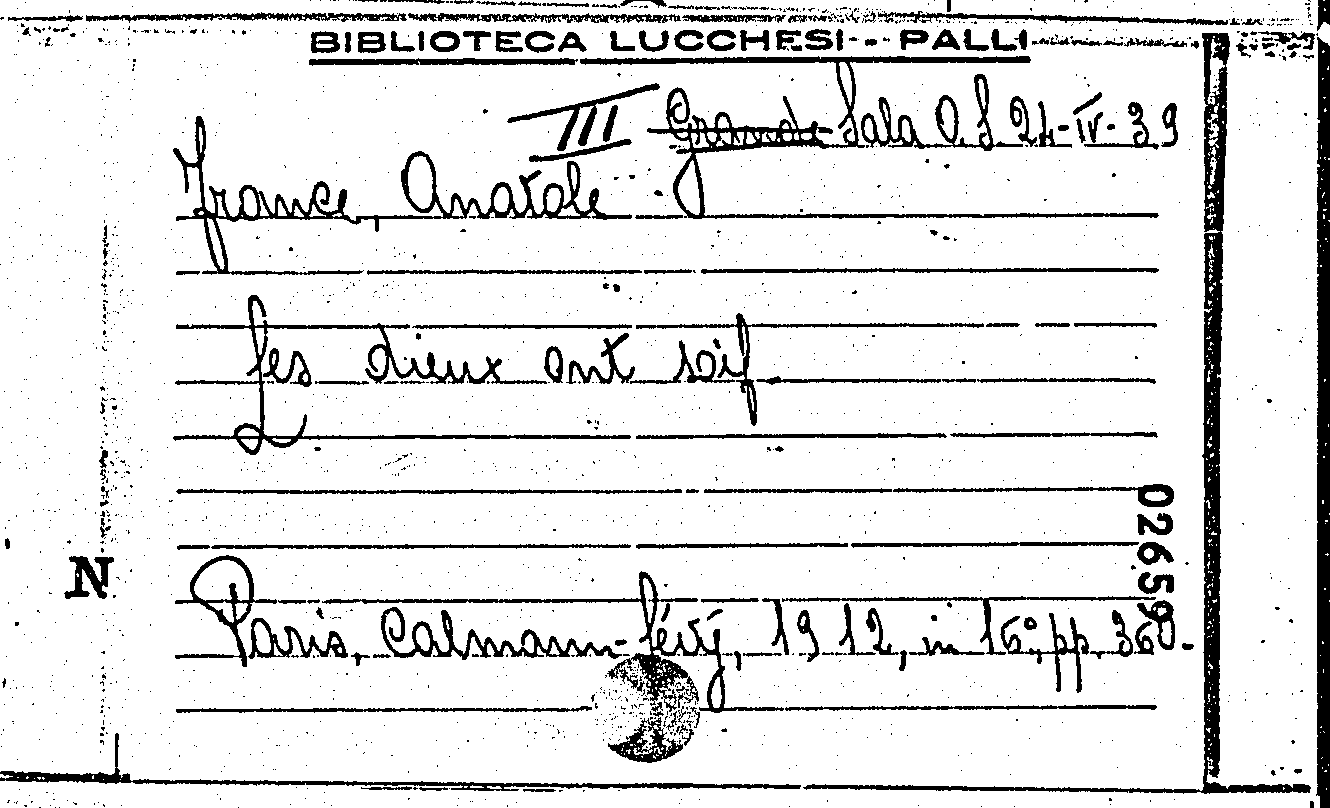 BIBLIOTECA LUCCHESI - PALLI
III Grande Sala O. S. 24-IV-39
France, Anatole
Les dieux ont soif.
02659
N
Paris, Calmann-Lévy, 1912, in 16°, pp. 360.